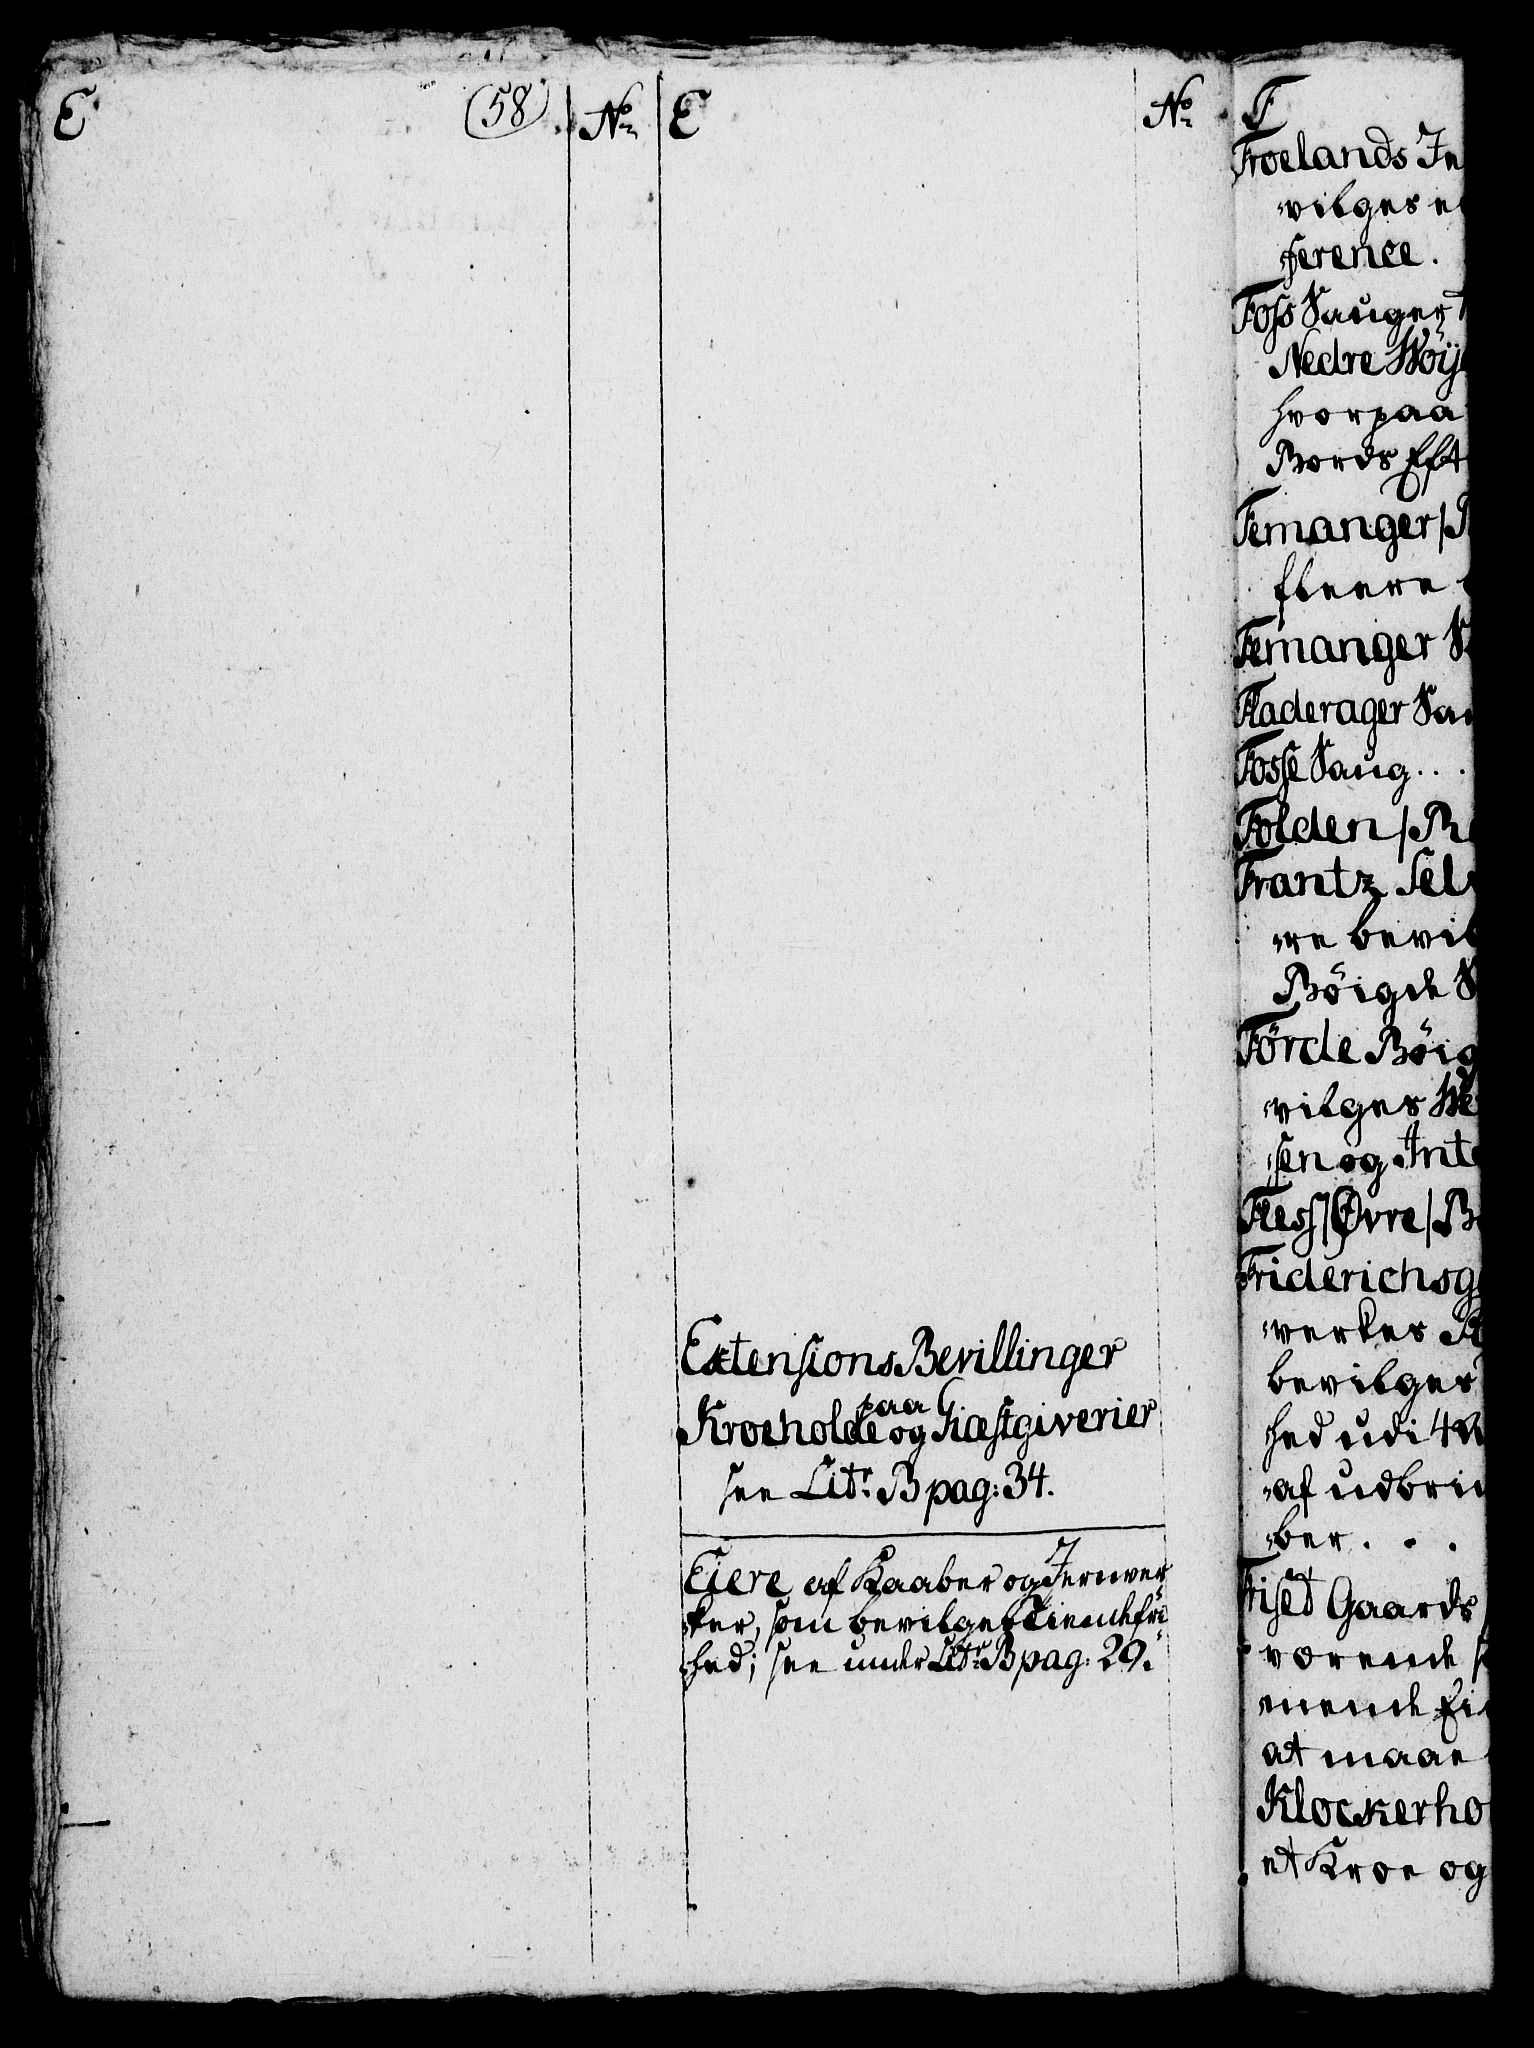 E (58) No E No
Extensions Bevillinger
paa
Kroehold og Giæstgiverier
see Litr B pag: 34.
Eiere af Kaaber og Jernver
ker, som bevilges Tiendefri
hed; see under Litr B pag: 29.
F
Froelands Je
vilges e
ference.
Foss Sauger
Nedre Wöÿ
hvorpaa
Bords Eft
Femanger
fleere
Femanger
Fladerager Sau
Fosse Saug...
Folden
Frantz Sel
re bevil
Böigde
Förde Böig
vilges We
sen og Inte
Fless Øvre
Friderichsg
verkes
bevilges
hed udi 4
af udbrin
ber . . .
Gaards
værende
mende
at maae
Klockerho
et Kroe og